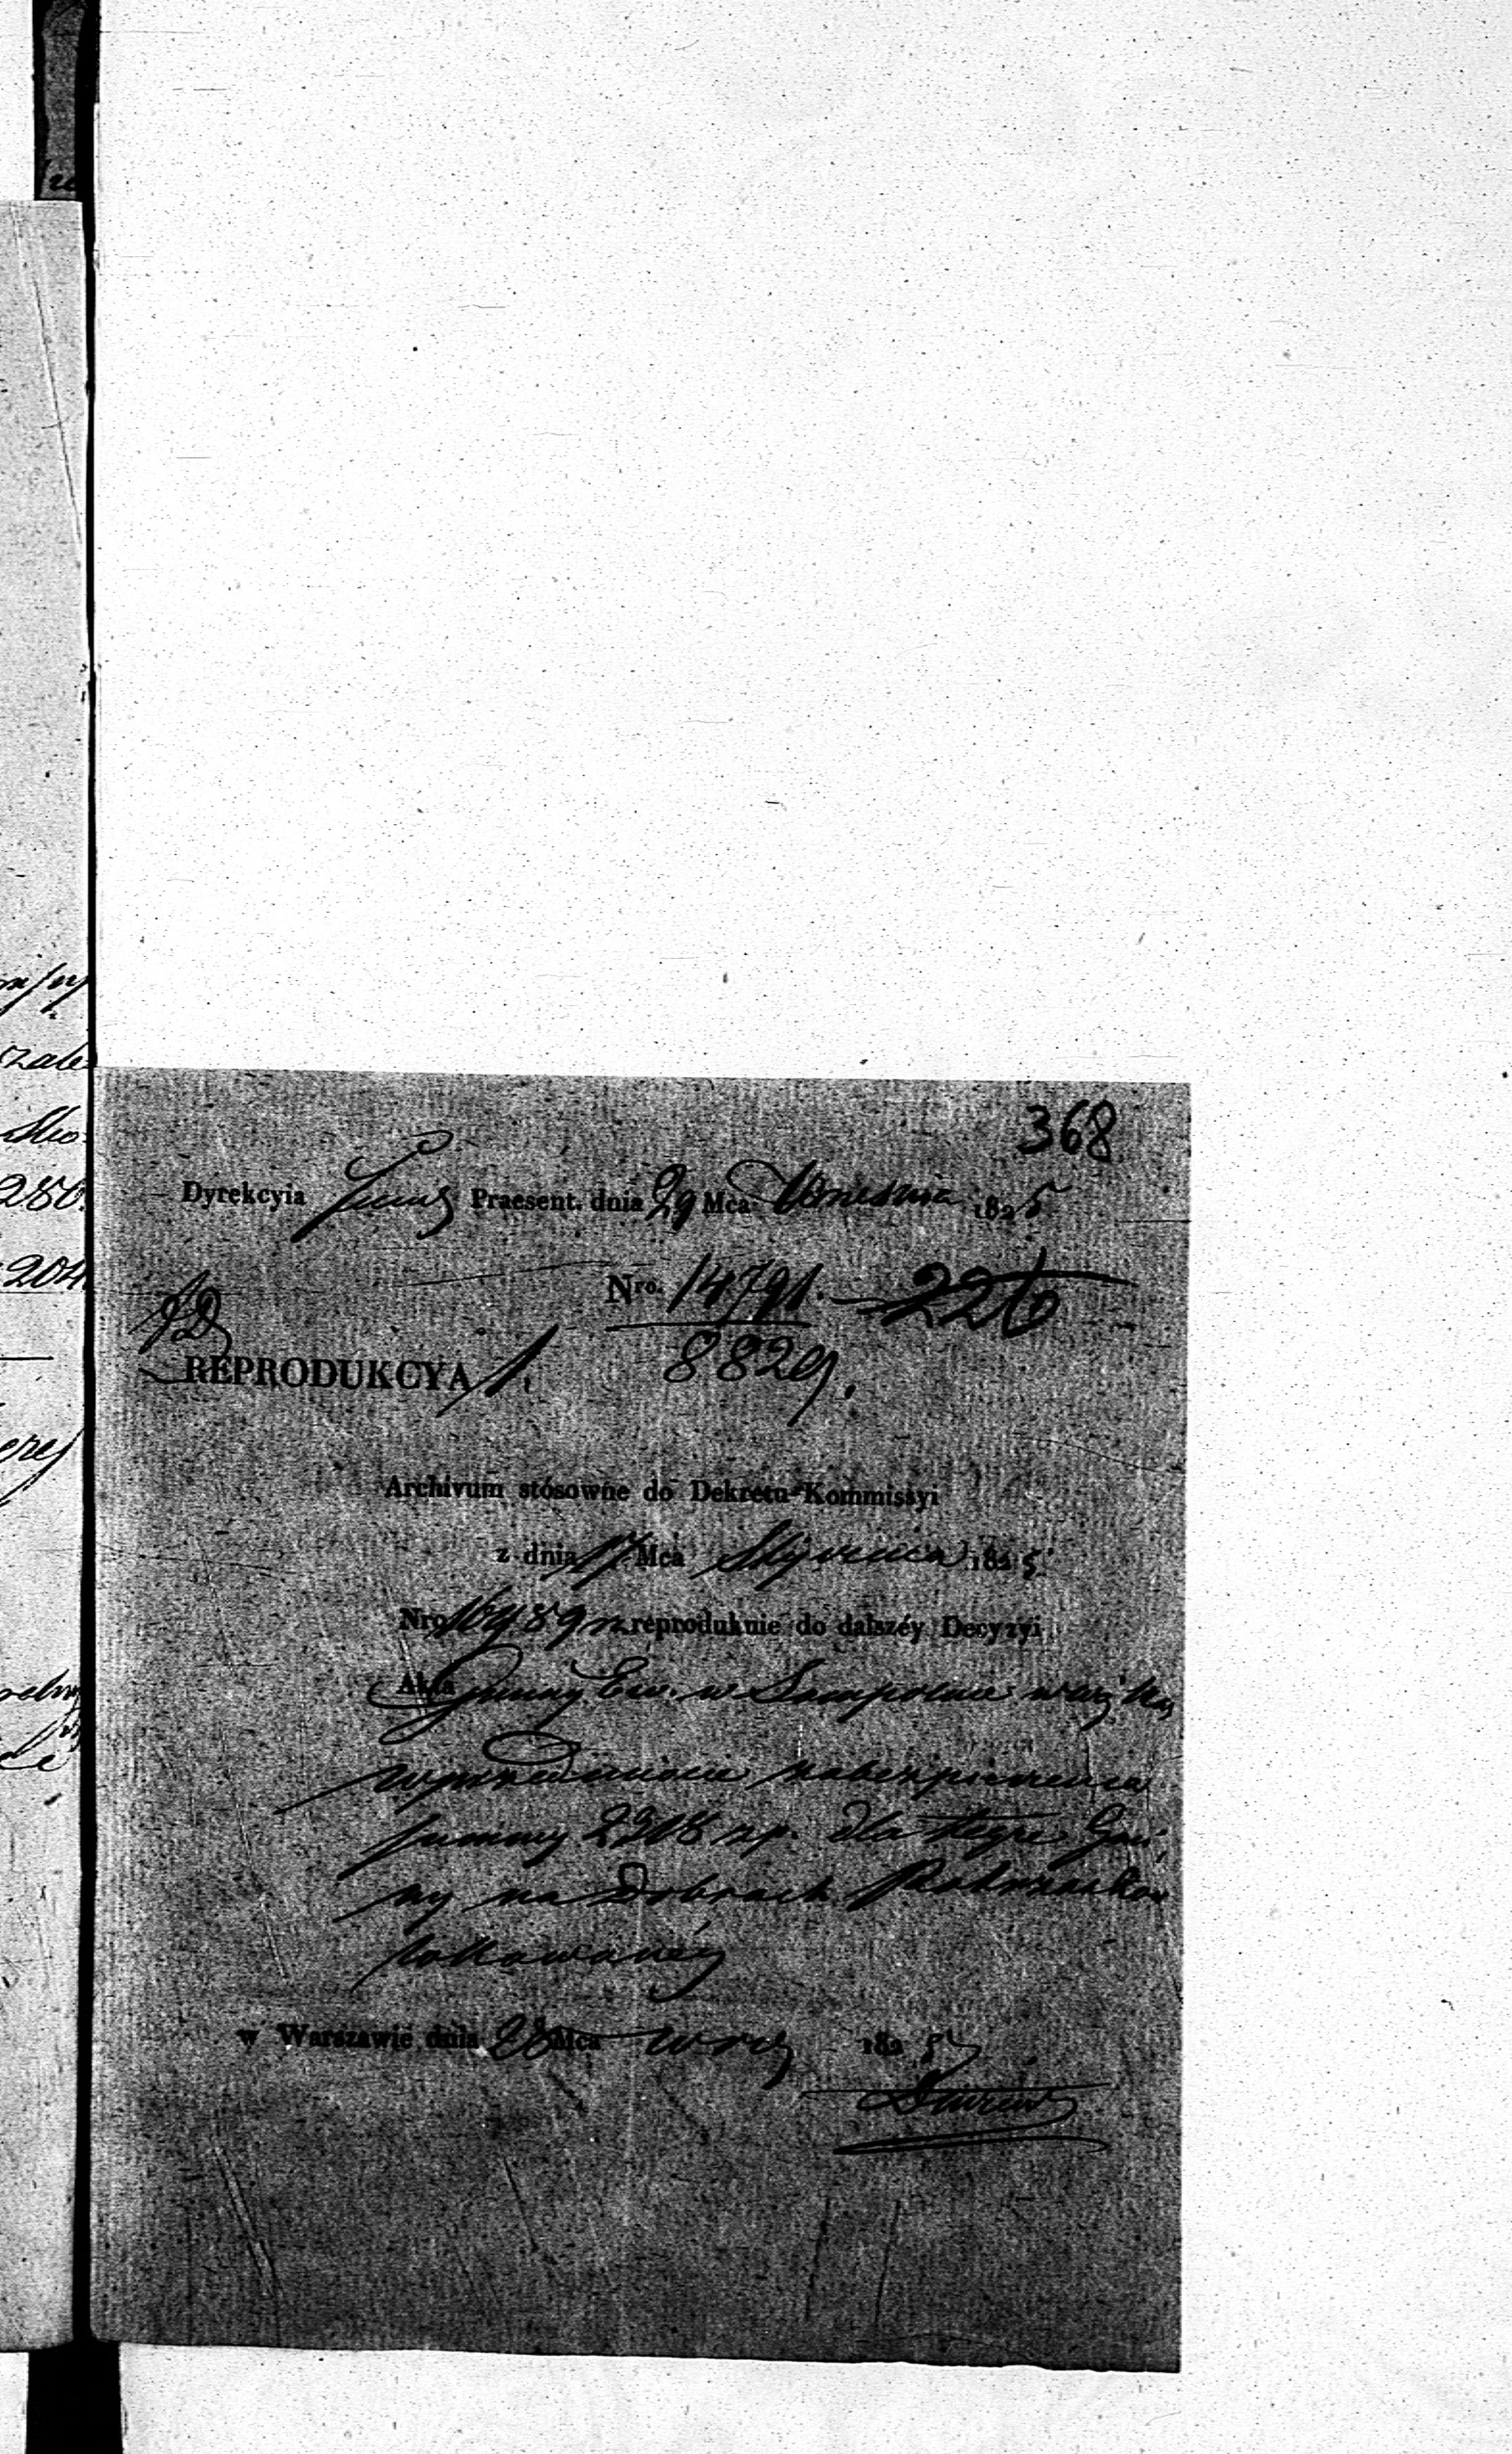 368
Dyrekcyia Praesent. dnia 29 Mca Wrzesnia 1825
Nro. 14791. 226
8829.
REPRODUKCYA 1.
Archivum stósowne do Dekretu Kommissyi
z dnia 17 Mca Stycznia 1825
Nro reprodukuie do dalszéy Decyzyi
Akta Gminy Ew. w Sompolnie
w przedmiocie zabezpieczenia
summy 2308 zp. dla teyże Gmi:
ny na Dobrach
lokowanéy
w Warszawie dnia 28 Mca Wrz 1825
zale
280.
204